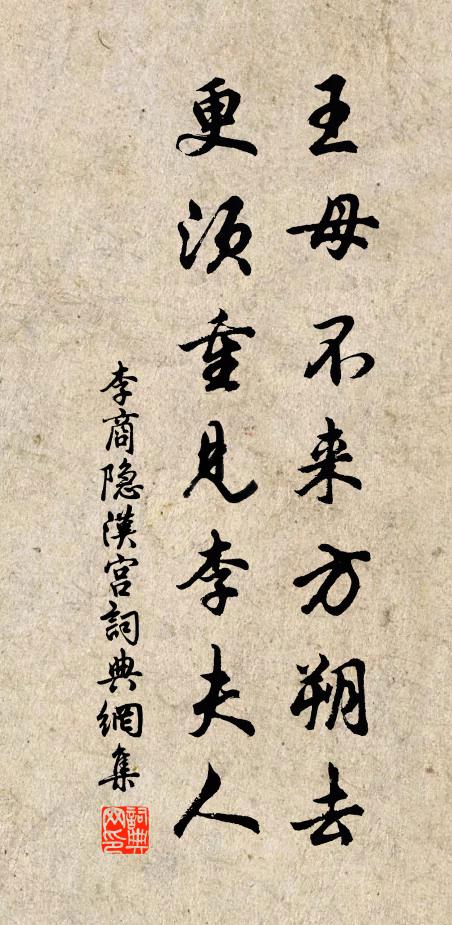 王母不来方朔去
更须重见李夫人
李商隐漢宫詞典網集
詞典网印